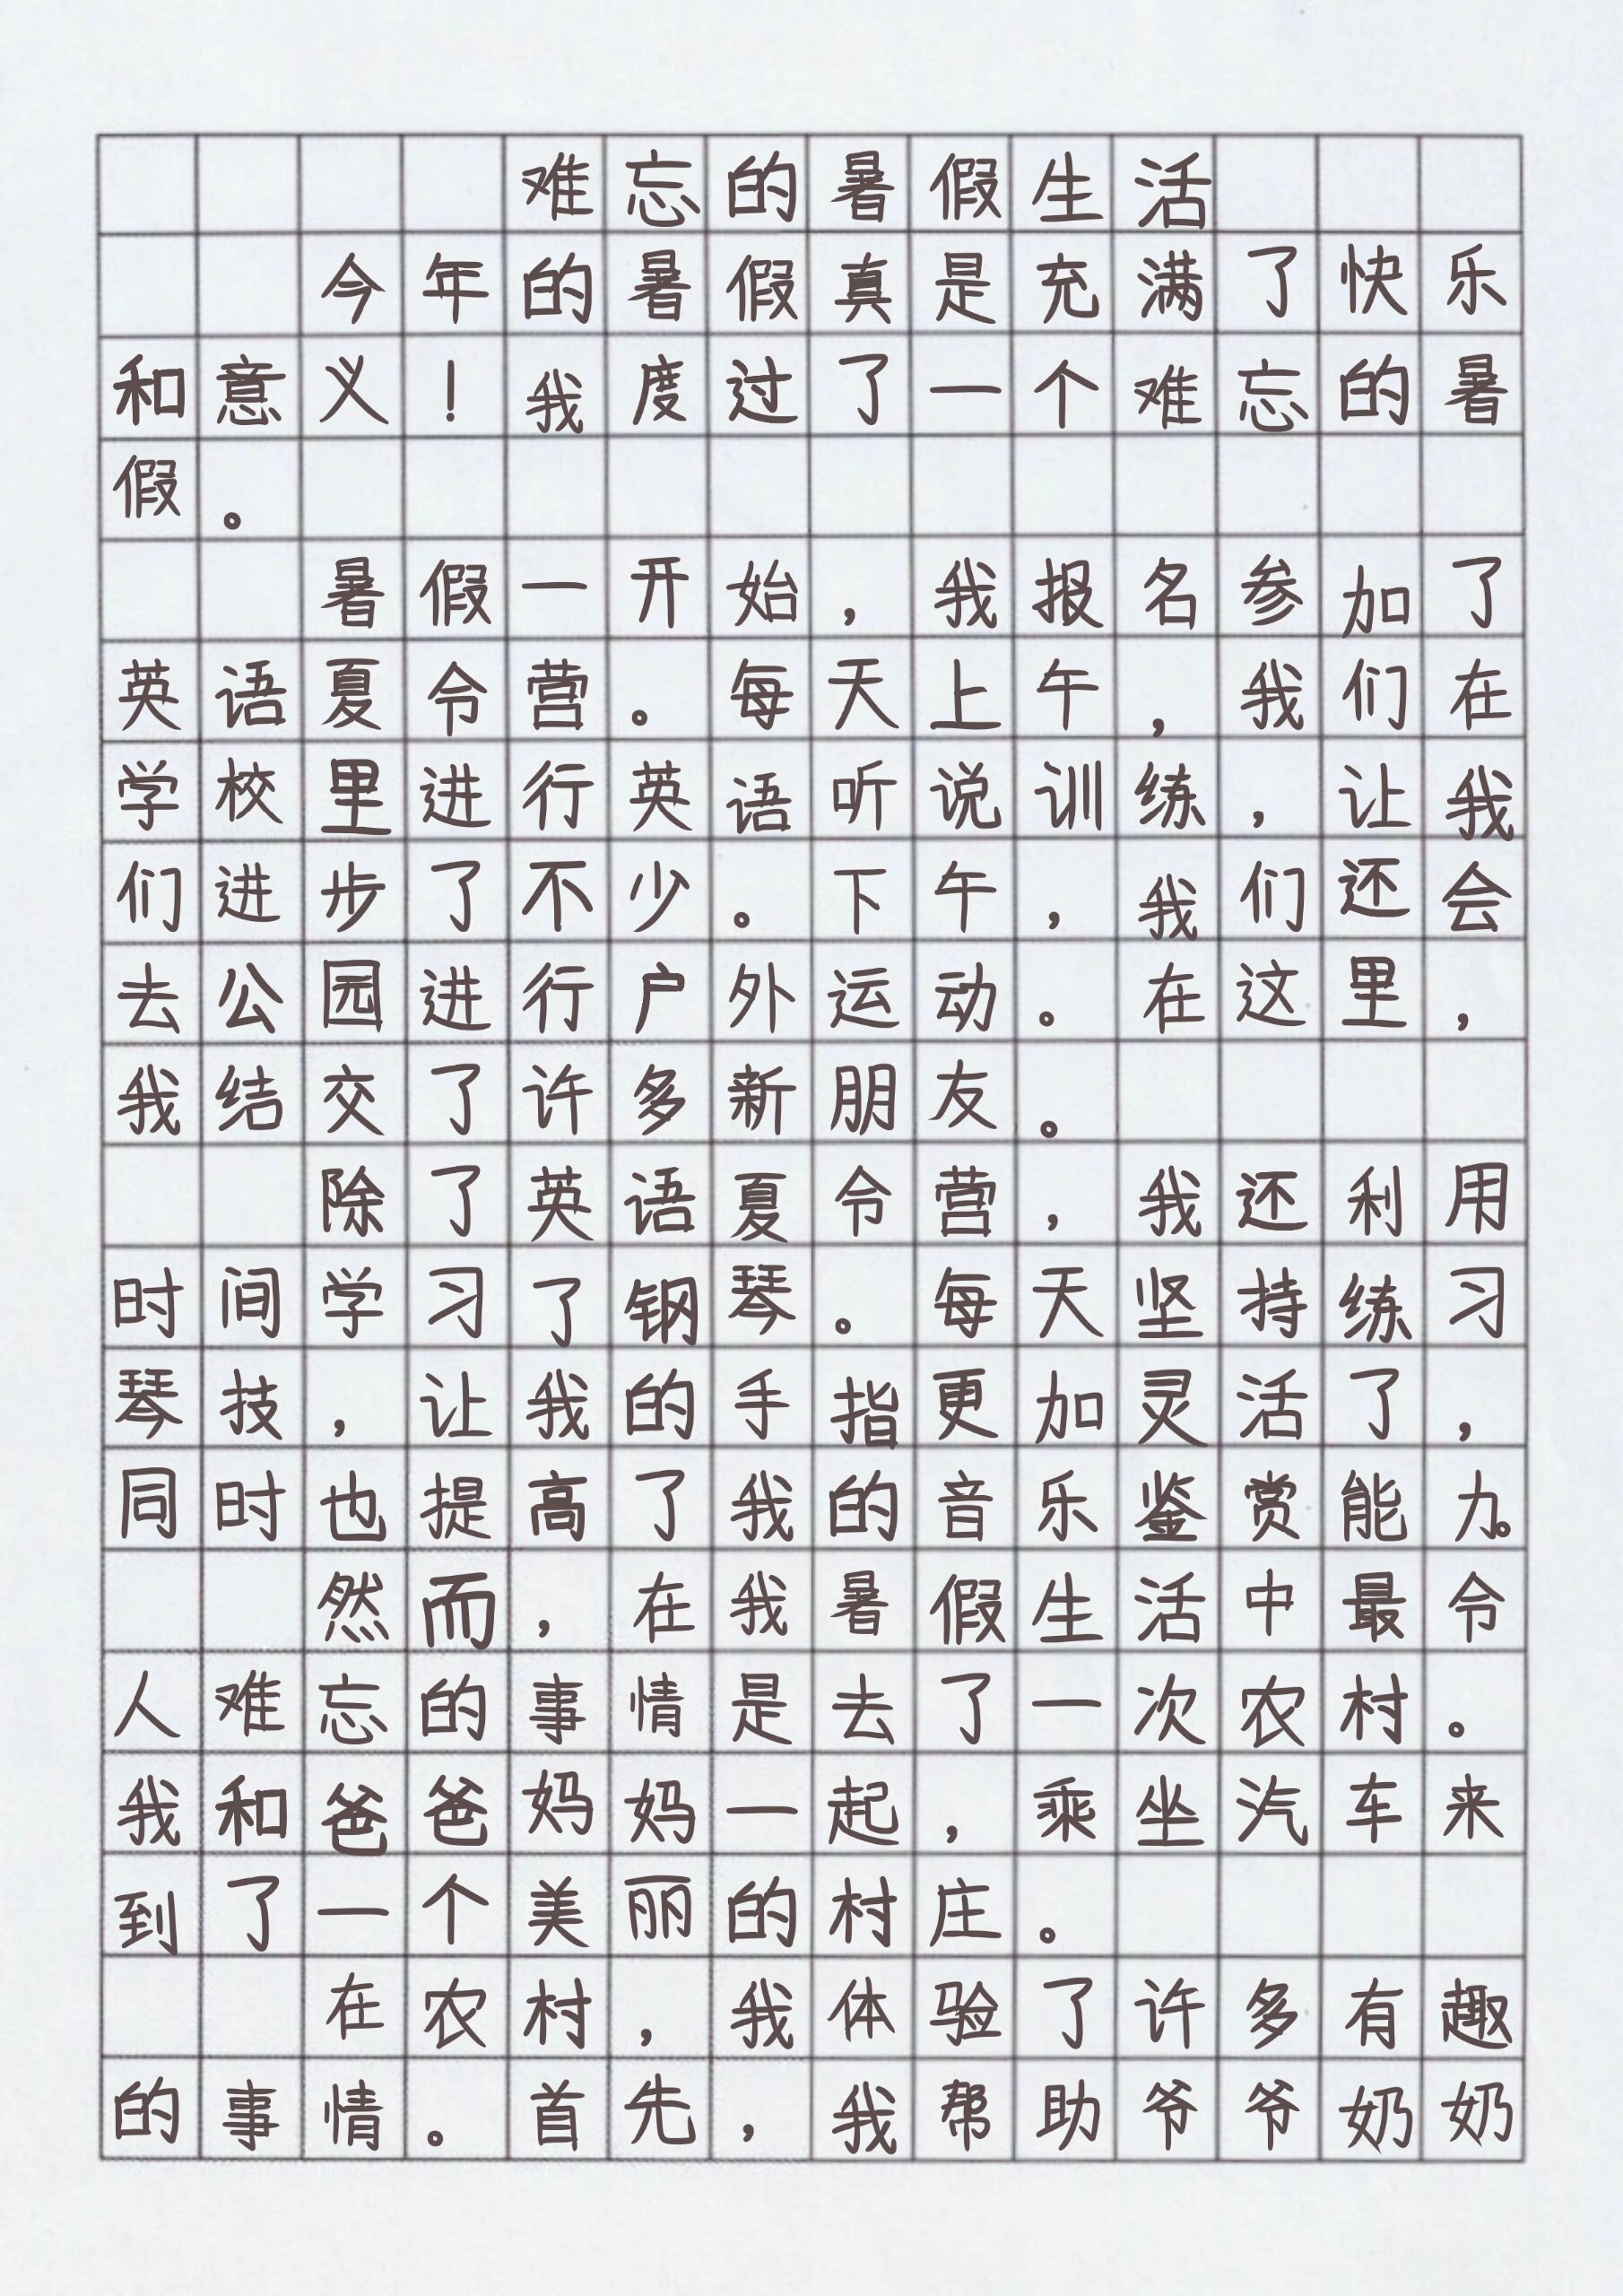 难忘的暑假生活
今年的暑假真是充满了快乐
和意义！我度过了一个难忘的暑
假。
暑假一开始，我报名参加了
英语夏令营。每天上午，我们在
学校里进行英语听说训练，让我
们进步了不少。下午，我们还会
去公园进行户外运动。在这里，
我结交了许多新朋友。
除了英语夏令营，我还利用
时间学习了钢琴。每天坚持练习
琴技，让我的手指更加灵活了，
同时也提高了我的音乐鉴赏能力。
然而，在我暑假生活中最令
人难忘的事情是去了一次农村。
我和爸爸妈妈一起，乘坐汽车来
到了一个美丽的村庄。
在农村，我体验了许多有趣
的事情。首先，我帮助爷爷奶奶